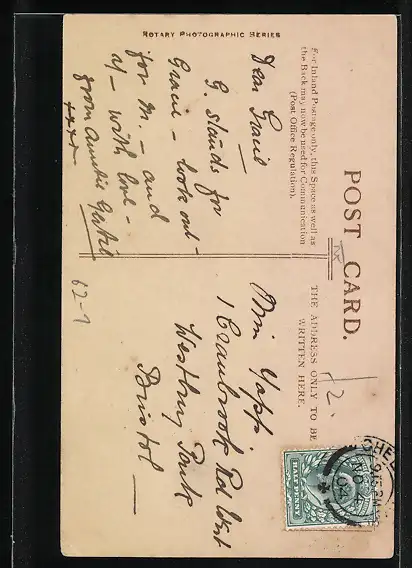 ROTARY PHOTOGRAPHIC SERIES
POST CARD.
For Inland Postage only, this Space as well as
the Back may now be used for Communication
(Post Office Regulation).
THE ADDRESS ONLY TO BE
WRITTEN HERE.
Dear Gracie
G. stands for
Gracie - look out -
for M. - and
with love -
from Auntie
Miss Yapp
1 Cranbrook Rd West
Westbury Park
Bristol
62-1
12
HALF PENNY
NO 4
04